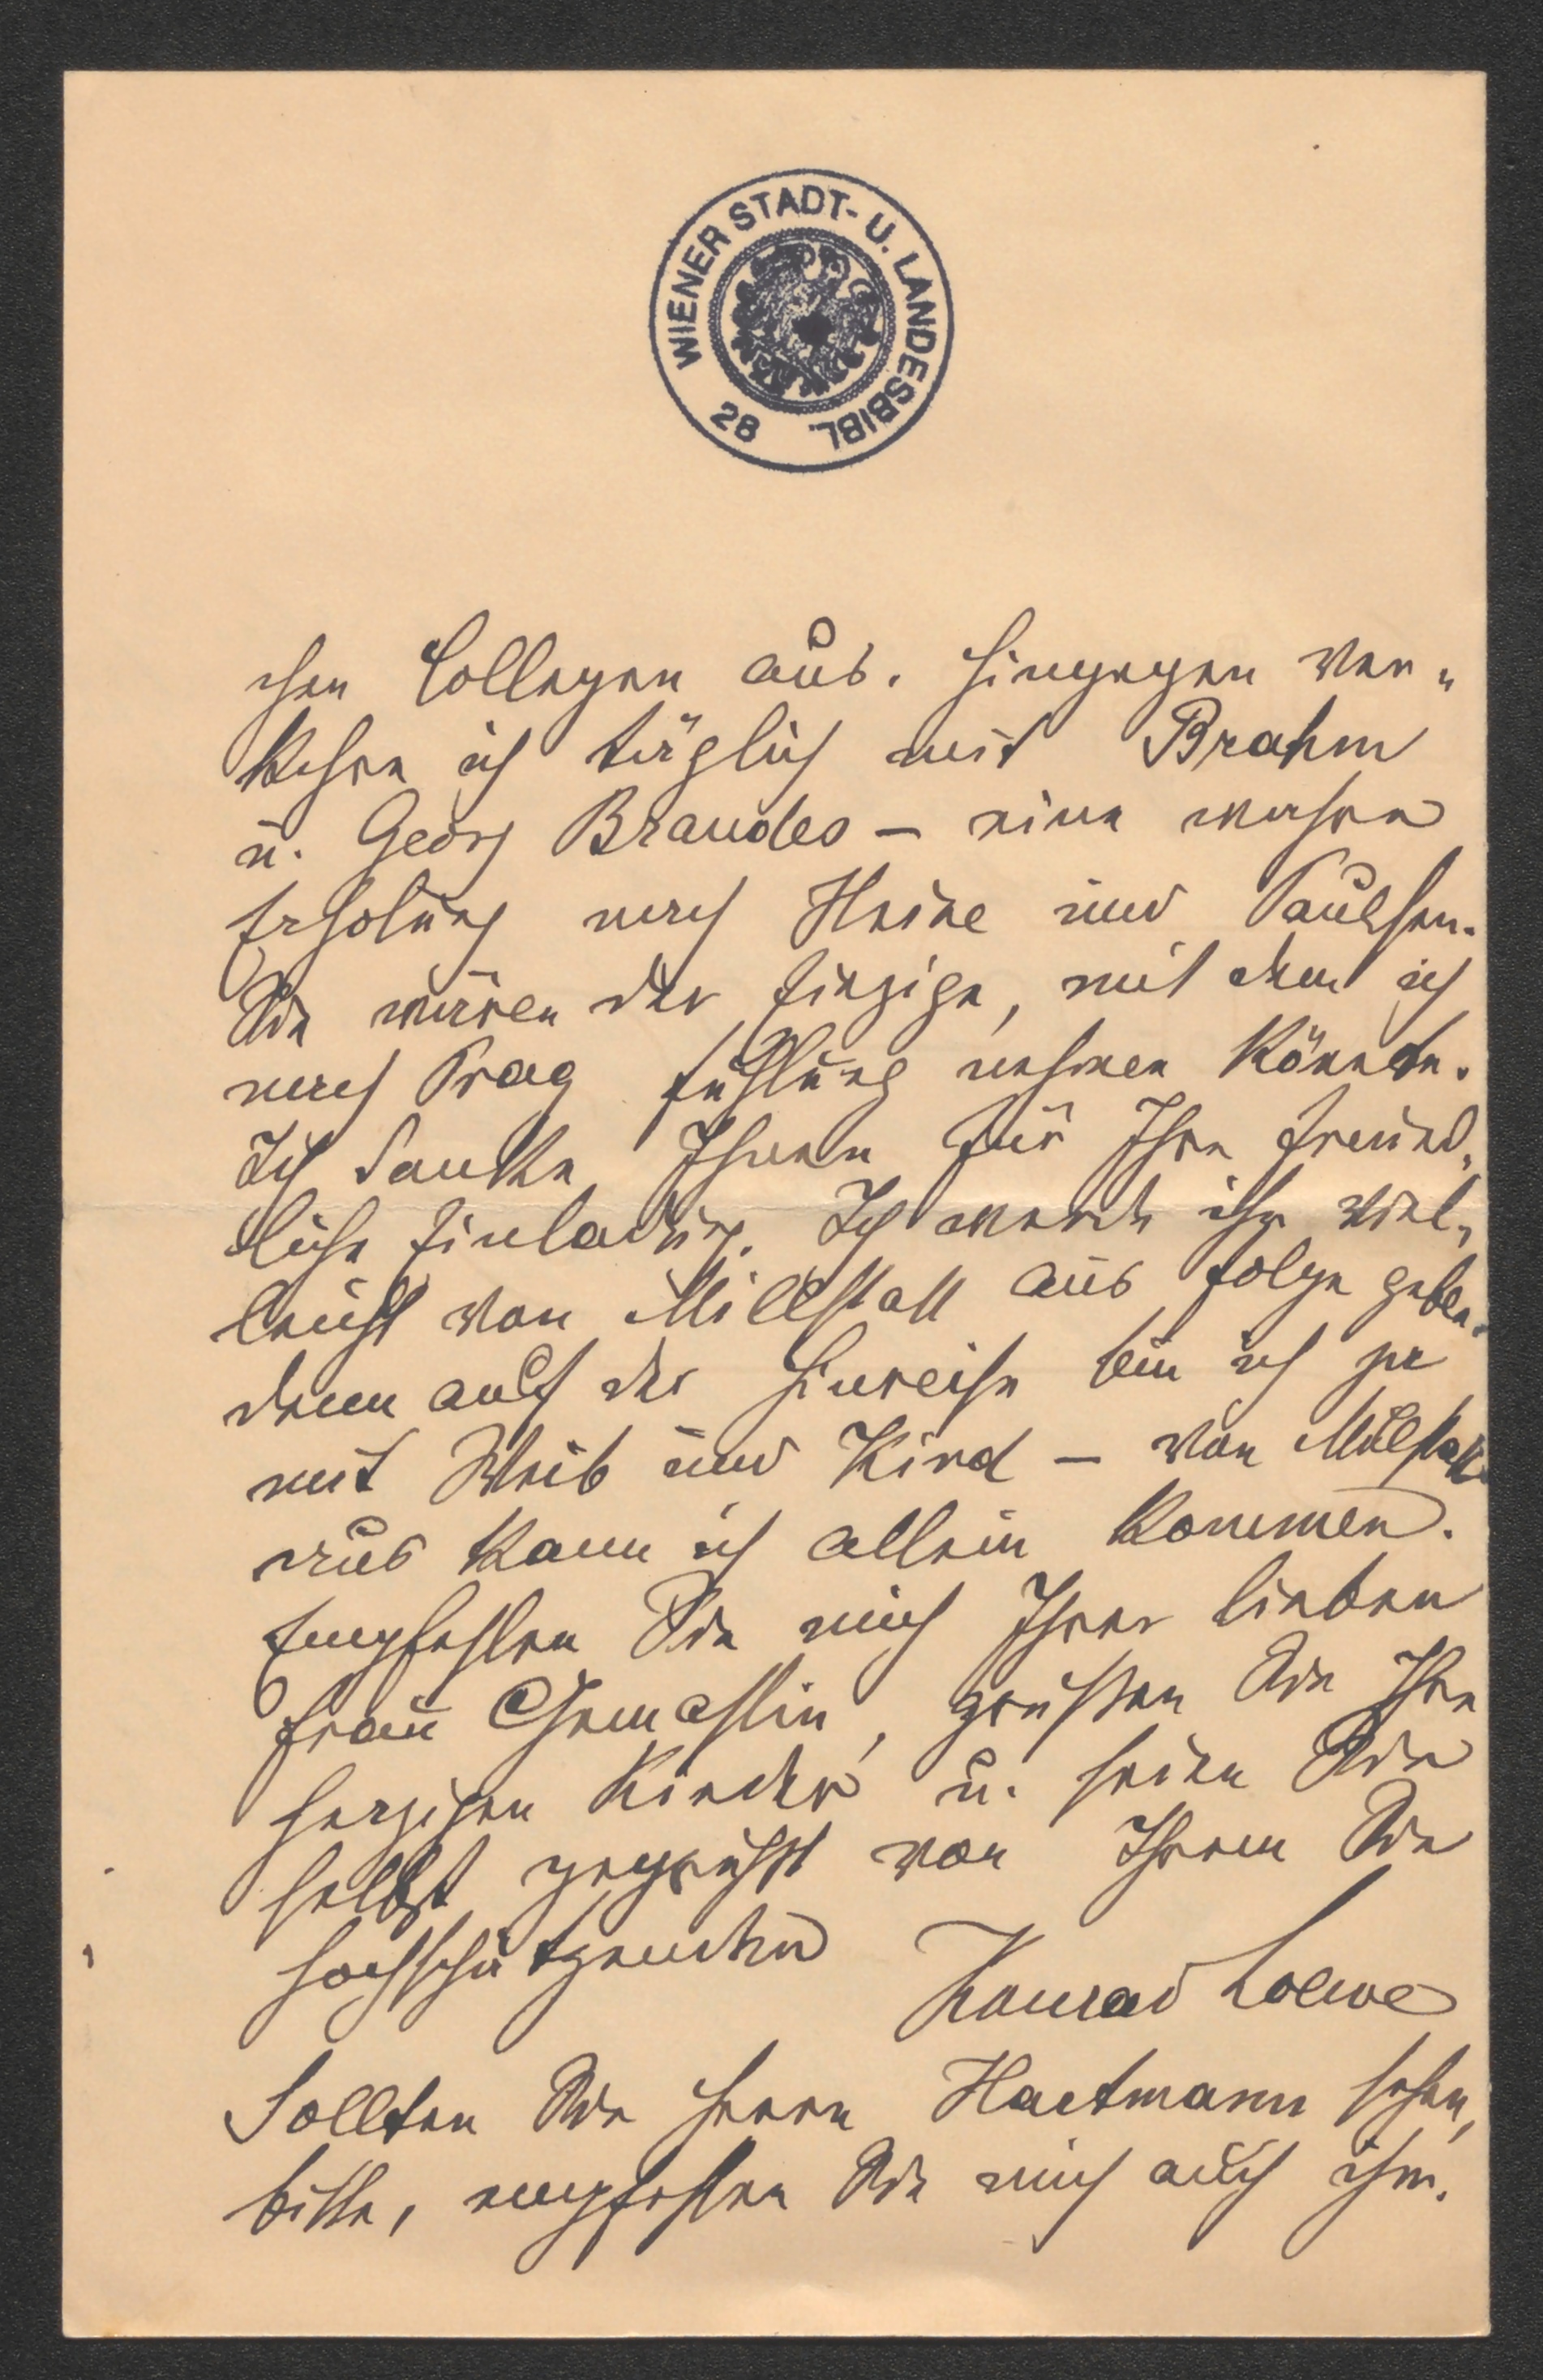 WIENER STADT- U. LANDESBIBL.
28
chen Collegen aus. Hingegen ver-
kehre ich täglich mit Brahm
u. Georg Brandes – eine wahre
Erholung nach Heine und Paulsen.
Sie wären der Einzige, mit dem ich
nach Prag Fühlung nehmen könnte.
Ich danke Ihnen für Ihre freund-
liche Einladung. Ich werde ihr viel-
leicht von Millstatt aus Folge geben,
denn auf der Hinreise bin ich ja
mit Weib und Kind – von Millstatt
aus kann ich allein kommen.
Empfehlen Sie mich Ihrer lieben
Frau Gemahlin, grüßen Sie Ihre
herzigen Kinder u. seien Sie
selbst gegrüßt von Ihrem Sie
hochschätzenden
Konrad Loewe
Sollten Sie Herrn Hartmann sehen,
bitte, empfehlen Sie mich auch ihm.